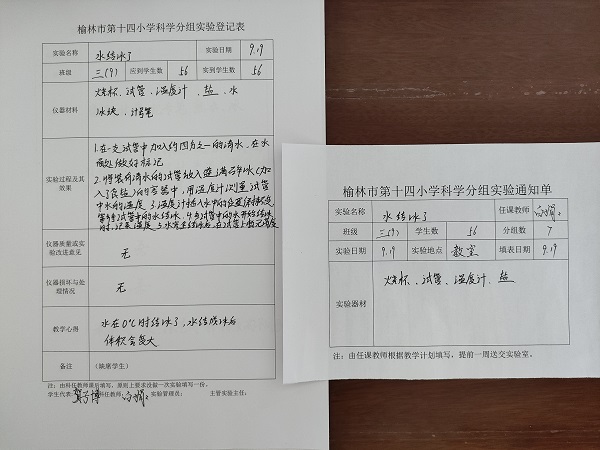 榆林市第十四小学科学分组实验登记表
实验名称 水结冰了 实验日期 9.19
班级 三(9) 应到学生数 56 实到学生数 56
仪器材料 烧杯、试管、温度计、盐、水
冰块、记号笔
实验过程及其效果
1.在一支试管中加入约四分之一的清水,在水
面处做好标记
2.将装有清水的试管放入装满碎冰(加
入了食盐)的容器中,用温度计测量试管
中水的温度 3.温度计插入水中的位置保持不变
等待试管中的水结冰
仪器质量或实验改进意见 无
仪器损坏与处理情况 无
教学心得 水在0℃时结冰了,水结成冰后
体积会变大
备注 (缺席学生)
注:由科任教师课后填写,原则上要求没做一次实验填写一份。
学生代表: 科任教师: 实验管理员: 主管实验主任:
榆林市第十四小学科学分组实验通知单
实验名称 水结冰了 任课教师
班级 三(9) 学生数 56 分组数 7
实验日期 9.19 实验地点 教室 填表日期 9.19
实验器材 烧杯、试管、温度计、盐
注:由任课教师根据教学计划填写,提前一周送交实验室。